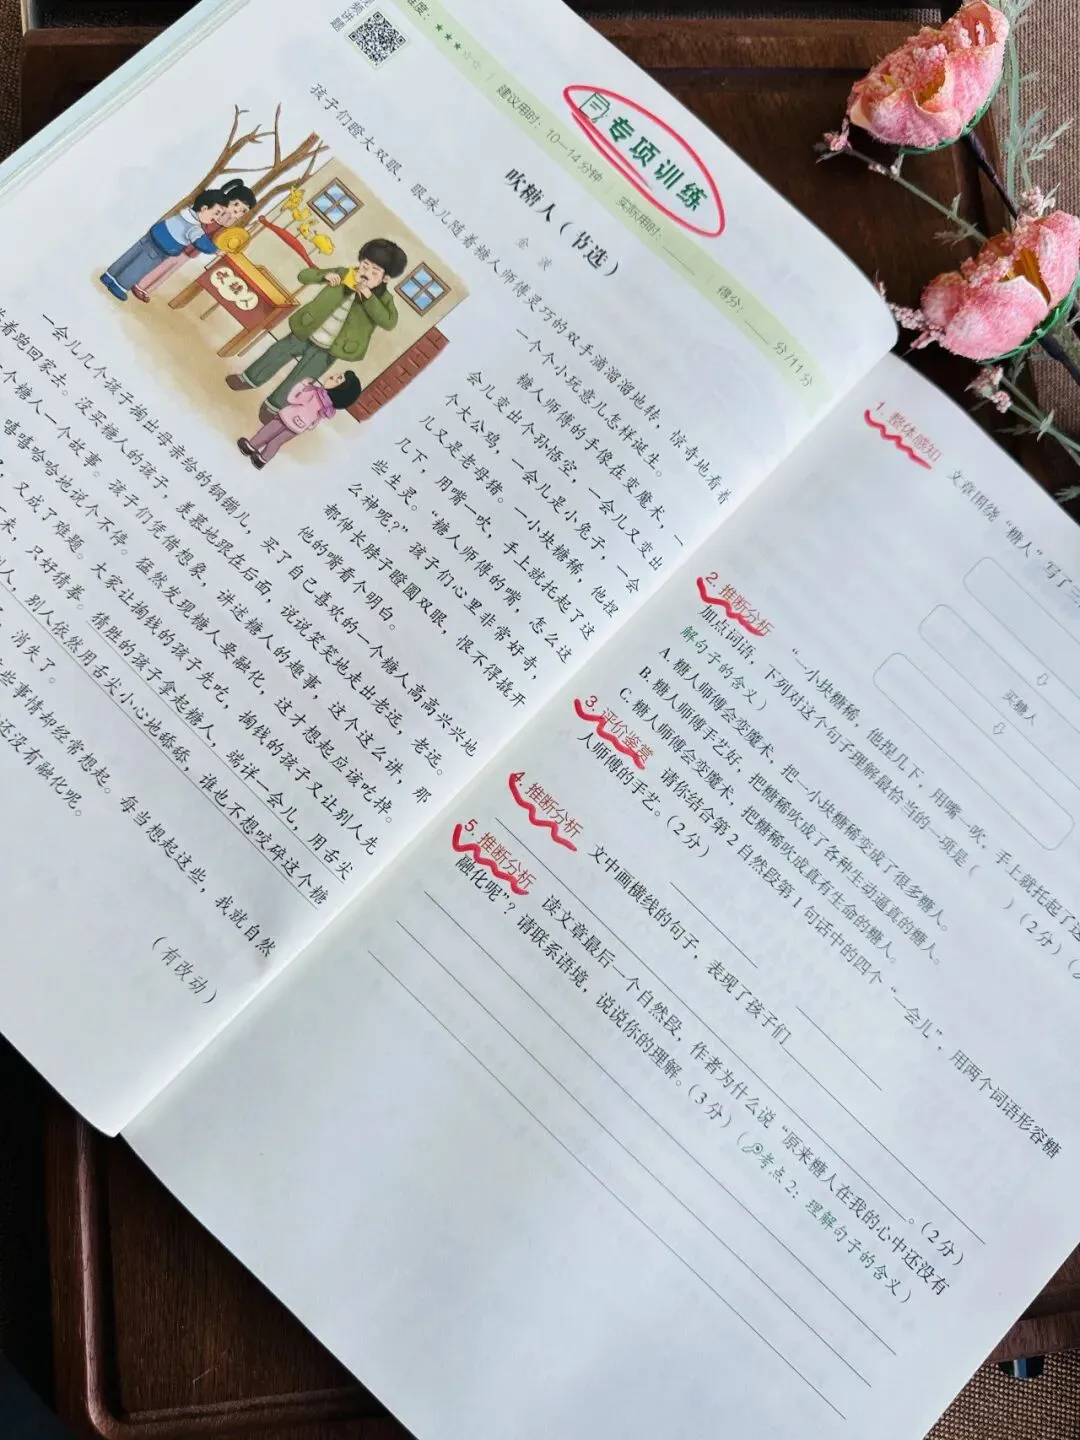 视频讲题
难度：★★★☆☆ | 建议用时：10—14分钟 | 实际用时：____ | 得分：____分/11分
专项训练
吹糖人（节选）
金 波
孩子们瞪大双眼，眼珠儿随着糖人师傅灵巧的双手滴溜溜地转，惊奇地看着
一个个小玩意儿怎样诞生。
糖人师傅的手像在变魔术，一
会儿变出个孙悟空，一会儿又变出
个大公鸡，一会儿是小兔子，一会
儿又是老母猪。一小块糖稀，他捏
几下，用嘴一吹，手上就托起了这
些生灵。“糖人师傅的嘴，怎么这
么神呢？”孩子们心里非常好奇，
都伸长脖子瞪圆双眼，恨不得撬开
他的嘴看个明白。
吹糖人
一会儿几个孩子掏出母亲给的钢镚儿，买了自己喜欢的一个糖人高高兴兴地
着跑回家去。没买糖人的孩子，羡慕地跟在后面，说说笑笑地走出老远，老远。
个糖人一个故事。孩子们凭借想象，讲述糖人的趣事，这个这么讲，那
嘻嘻哈哈地说个不停。猛然发现糖人要融化，这才想起应该吃掉。
，又成了难题。大家让掏钱的孩子先吃，掏钱的孩子又让别人先
来，只好猜拳。猜胜的孩子拿起糖人，端详一会儿，用舌尖
别人，别人依然用舌尖小心地舔舔，谁也不想咬碎这个糖
，消失了。
些事情却经常想起。每当想起这些，我就自然
还没有融化呢。
（有改动）
1. 整体感知 文章围绕“糖人”写了三
买糖人
2. 推断分析 “一小块糖稀，他捏几下，用嘴一吹，手上就托起了这
加点词语，下列对这个句子理解最恰当的一项是（ ）（2分）
解句子的含义）
A. 糖人师傅会变魔术，把一小块糖稀变成了很多糖人。
B. 糖人师傅手艺好，把糖稀吹成了各种生动逼真的糖人。
C. 糖人师傅会变魔术，把糖稀吹成真有生命的糖人。
3. 评价鉴赏 请你结合第2自然段第1句话中的四个“一会儿”，用两个词语形容糖
人师傅的手艺。（2分）
4. 推断分析 文中画横线的句子，表现了孩子们____。（2分）
5. 推断分析 读文章最后一个自然段，作者为什么说“原来糖人在我的心中还没有
融化呢”？请联系语境，说说你的理解。（3分）（考点2：理解句子的含义）